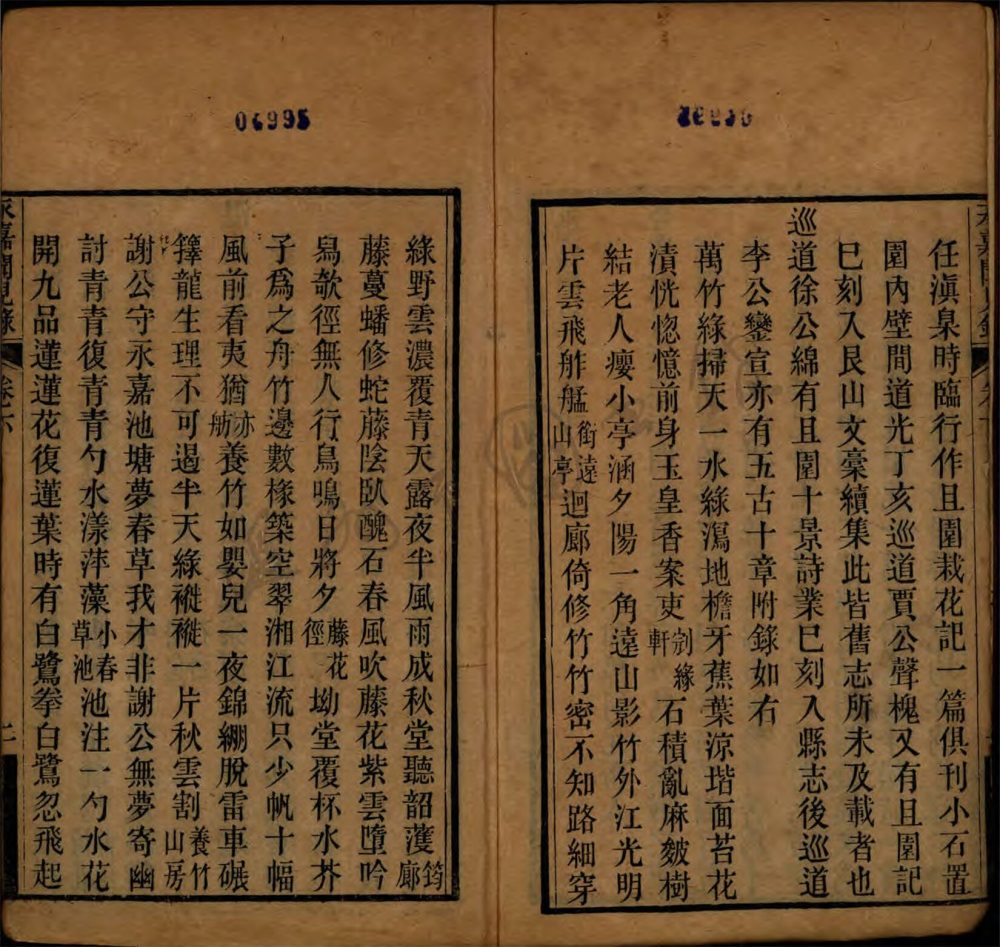 任滇臬時臨行作且園栽花記一篇俱刊小石置
園內壁間道光丁亥巡道賈公聲槐又有且園記
巳刻入艮山文稾續集此皆舊志所未及載者也
巡道徐公綿有且園十景詩業巳刻入縣志後巡道
李公鑾宣亦有五古十章附錄如右
萬竹緣掃天一水綠瀉地檐牙蕉葉涼堦面苔花
漬恍惚憶前身玉皇香案吏剡緣軒石積亂麻皴樹
結老人癭小亭涵夕陽一角遠山影竹外江光明
片雲飛舴艋銜遠山亭迴廊倚修竹竹密不知路細穿
綠野雲濃覆青天露夜半風雨成秋堂聽韶濩筠廊
藤蔓蟠修蛇藤陰臥醜石春風吹藤花紫雲墮吟
舄欹徑無人行鳥鳴日將夕藤花徑坳堂覆杯水芥
子爲之舟竹邊數椽築空翠湘江流只少帆十幅
風前看夷猶亦舫養竹如嬰兒一夜錦綳脫雷車碾
籜龍生理不可遏半天綠褷褷一片秋雲割養竹山房
謝公守永嘉池塘夢春草我才非謝公無夢寄幽
討青青復青青勺水漾萍藻小春草池池注一勺水花
開九品蓮蓮花復蓮葉時有白鷺拳白鷺忽飛起
永嘉聞見錄
卷六
04995